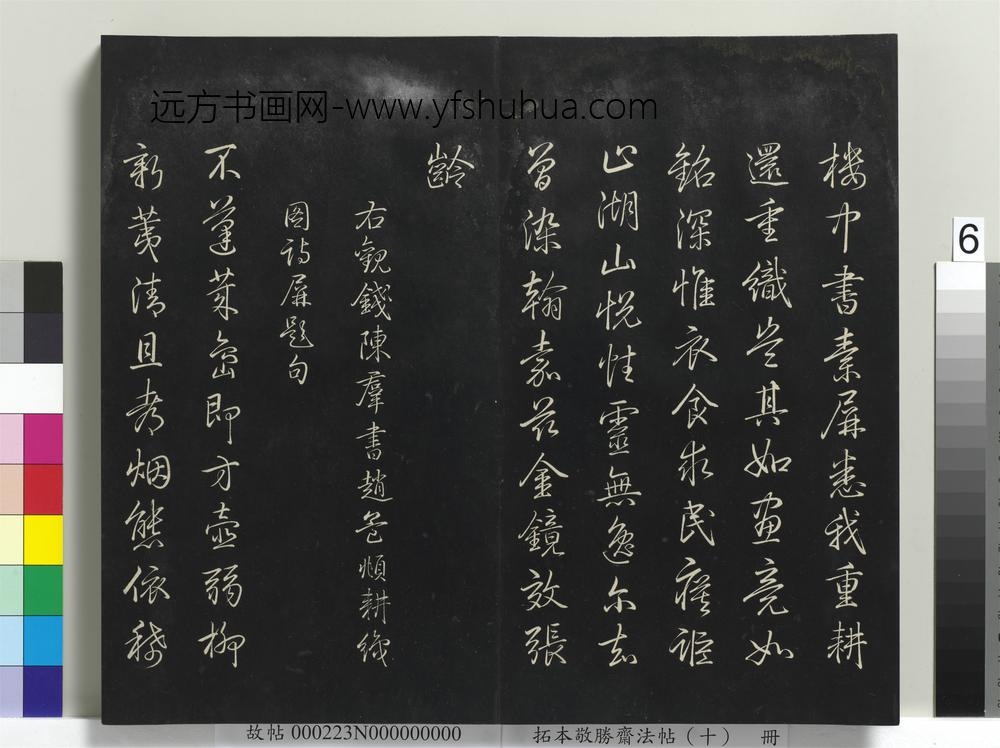 远方书画网-www.yfshuhua.com
樓中書素屏悉我重耕
還重織豈其如畫竟如
銘深惟衣食求民瘼詎
止湖山悦性靈無逸尔
曾染翰嘉茲金鏡效張
齡
右觀錢陳羣書趙孟頫耕織
圖詩屏題句
不蓬莱島即方壺弱柳
新荑清且都烟態依稀
6
故帖 000223N000000000
拓本敬勝齋法帖（十） 冊